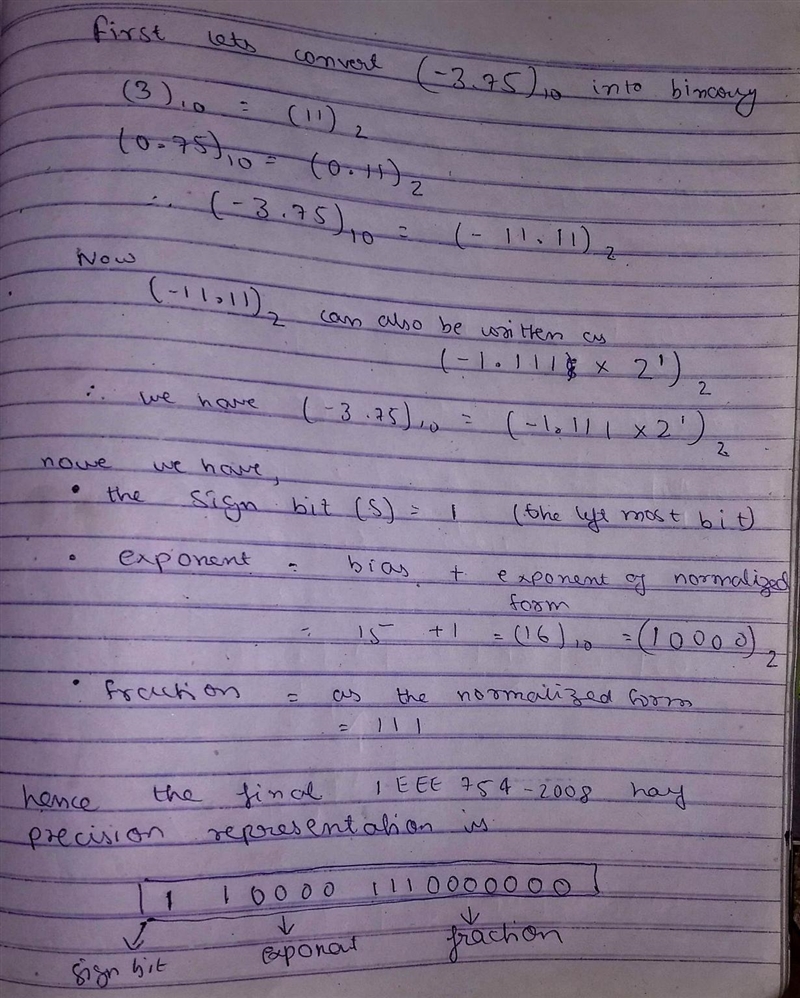 first lets convert (-3.75)₁₀ into bincory
(3)₁₀ = (11)₂
(0.75)₁₀ = (0.11)₂
∴ (-3.75)₁₀ = (-11.11)₂
Now
(-11.11)₂ can also be written as
(-1.111 × 2¹)₂
∴ we have (-3.75)₁₀ = (-1.111 × 2¹)₂
nowe we have,
• the sign bit (S) = 1 (the left most bit)
• exponent = bias + exponent of normalized
form
= 15 + 1 = (16)₁₀ = (10000)₂
• fraction = as the normalized form
= 111
hence the final IEEE 754-2008 half
precision representation is
1 10000 1110000000
sign bit exponat fraction